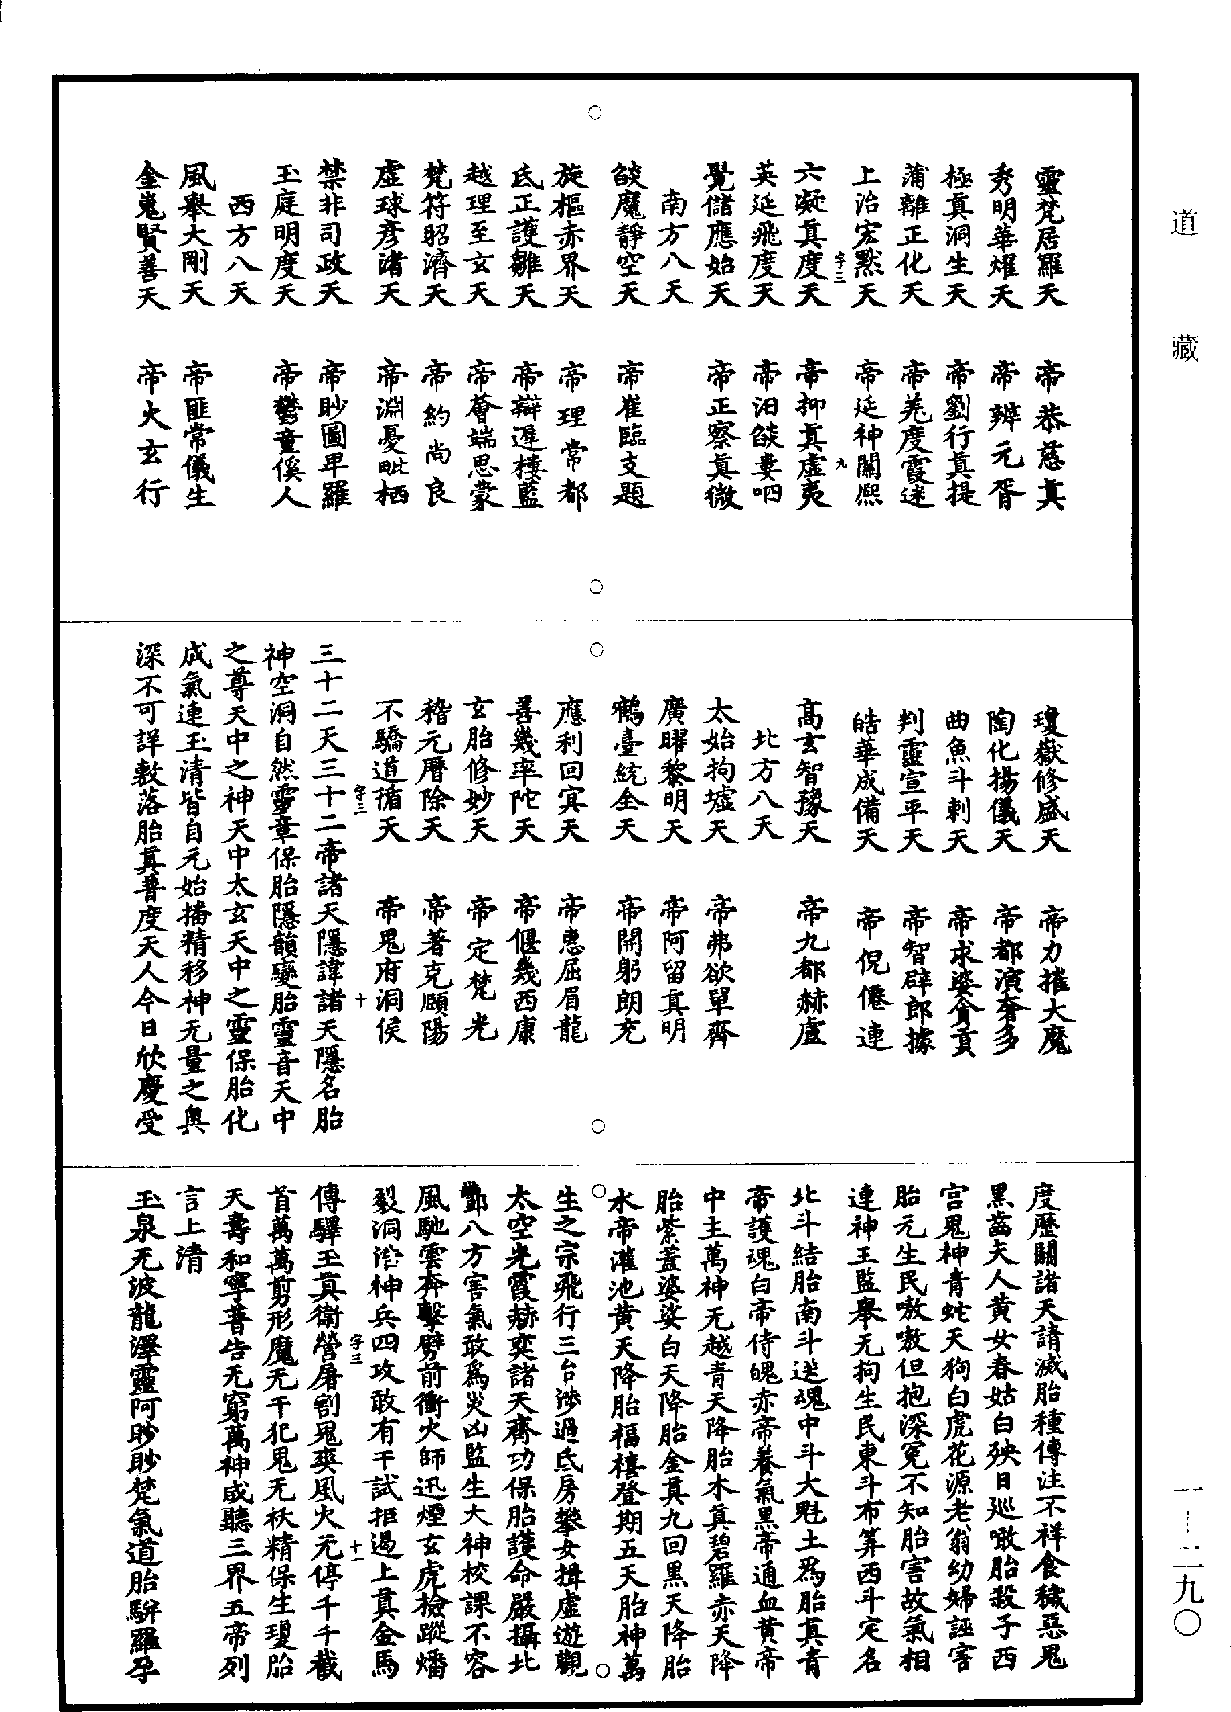 道藏
靈梵居羅天　帝恭慈真
秀明華燿天　帝辨元胥
極真洞生天　帝劉行真提
蒲離正化天　帝羌度霞迷
上治宏黙天　帝延神關熈
字三　九
六凝真度天　帝抑真虚夷
英延飛度天　帝汨燄妻呬
覺儲應始天　帝正察真微
南方八天
燄魔靜空天　帝崔臨支題
旋樞赤界天　帝理常都
氐正護雛天　帝辯遲棲藍
越理至玄天　帝薈端思蒙
梵符昭濟天　帝約尚良
虛球彥渚天　帝淵憂毗栖
禁非司政天　帝眇圖早羅
玉庭明度天　帝鬱童傒人
西方八天
風舉大剛天　帝匪常儀生
金嵬賢善天　帝火玄行
瓊嶽修盛天　帝力摧大魔
陶化揚儀天　帝都演奢多
曲魚斗刺天　帝求婆貪貢
判靈宣平天　帝智辟郎據
皓華成備天　帝倪僊連
高玄智豫天　帝九都赫盧
北方八天
太始拘墟天　帝弗欲單齊
廣曜黎明天　帝阿留真明
鶴臺統全天　帝開躬朗充
應利回宾天　帝惠屈眉龍
善幾率陀天　帝偃幾西康
玄胎修妙天　帝定梵光
稽元曆除天　帝著克頤陽
字三　十
不驕道揗天　帝鬼府洞侯
三十二天三十二帝諸天隱諱諸天隱名胎
神空洞自然靈章保胎隱韻變胎靈音天中
之尊天中之神天中太玄天中之靈保胎化
成氣連玉清皆自元始播精移神无量之奧
深不可詳敷落胎真普度天人今日欣慶受
度歷關諸天請滅胎種傳注不祥食穢惡鬼
黑齒夫人黃女春姑白殃日巡噉胎殺子西
宫鬼神青蛇天狗白虎花源老翁幼婦誣害
胎元生民嗷嗷但抱深冤不知胎害故氣相
連神王監舉无拘生民東斗布筭西斗定名
北斗結胎南斗送魂中斗大魁土為胎真青
帝護魂白帝侍魄赤帝養氣黑帝通血黄帝
中主萬神无越青天降胎木真碧羅赤天降
胎紫蓋婆娑白天降胎金真九回黑天降胎
水帝灌池黄天降胎福禧登期五天胎神萬
生之宗飛行三台渺過氐房攀女揖虚遊觀
太空光霞赫奕諸天齊功保胎護命嚴攝北
酆八方害氣敢為災凶監生大神校課不容
風馳雲奔擊劈前衝火師迅煙玄虎檢蹤燔
裂洞清神兵四攻敢有干試拒遏上真金馬
字三　十一
傳驛玉真衛營屠割鬼爽風火无停千千截
首萬萬剪形魔无干犯鬼无袄精保生瓊胎
天壽和寧普告无窮萬神咸聽三界五帝列
言上清
玉泉无波龍澤靈阿眇眇梵氣道胎駢羅孕
一－二九〇